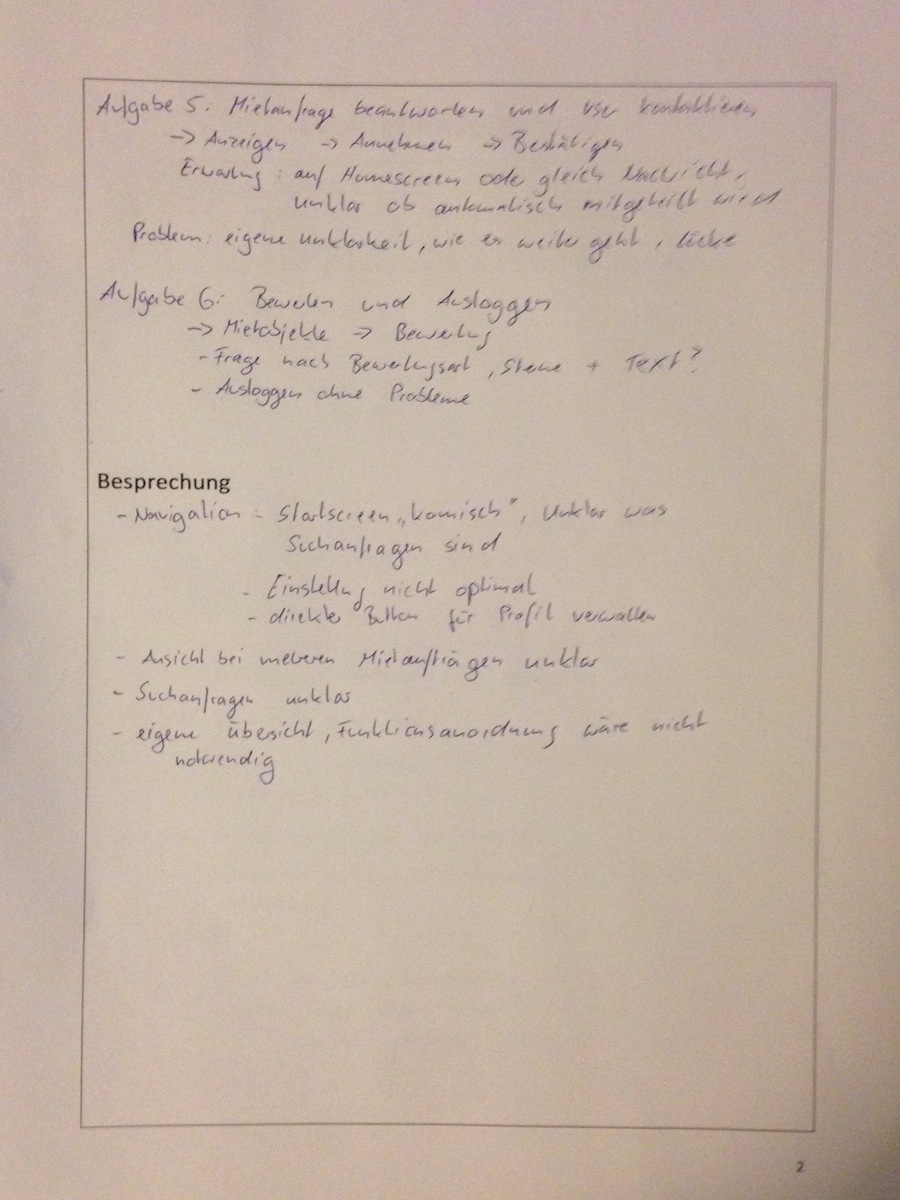 Aufgabe 5: Mietanfrage beantworten und User kontaktieren
-> Anzeigen -> Annehmen -> Bestätigen
Erwartung: auf Homescreen oder gleich Nachricht,
unklar ob automatisch mitgeteilt wird
Problem: eigene Unklarheit, wie es weiter geht, Lücke
Aufgabe 6: Bewerten und Ausloggen
-> Mietobjekte -> Bewertung
- Frage nach Bewertungsart, Sterne + Text?
- Ausloggen ohne Probleme
Besprechung
- Navigation: Startscreen „komisch", Unklar was
Suchanfragen sind
- Einstellung nicht optimal
- direkter Button für Profil verwalten
- Ansicht bei meheren Mietaufträgen unklar
- Suchanfragen unklar
- eigene Übersicht, Funktionsanordnung wäre nicht
notwendig
2